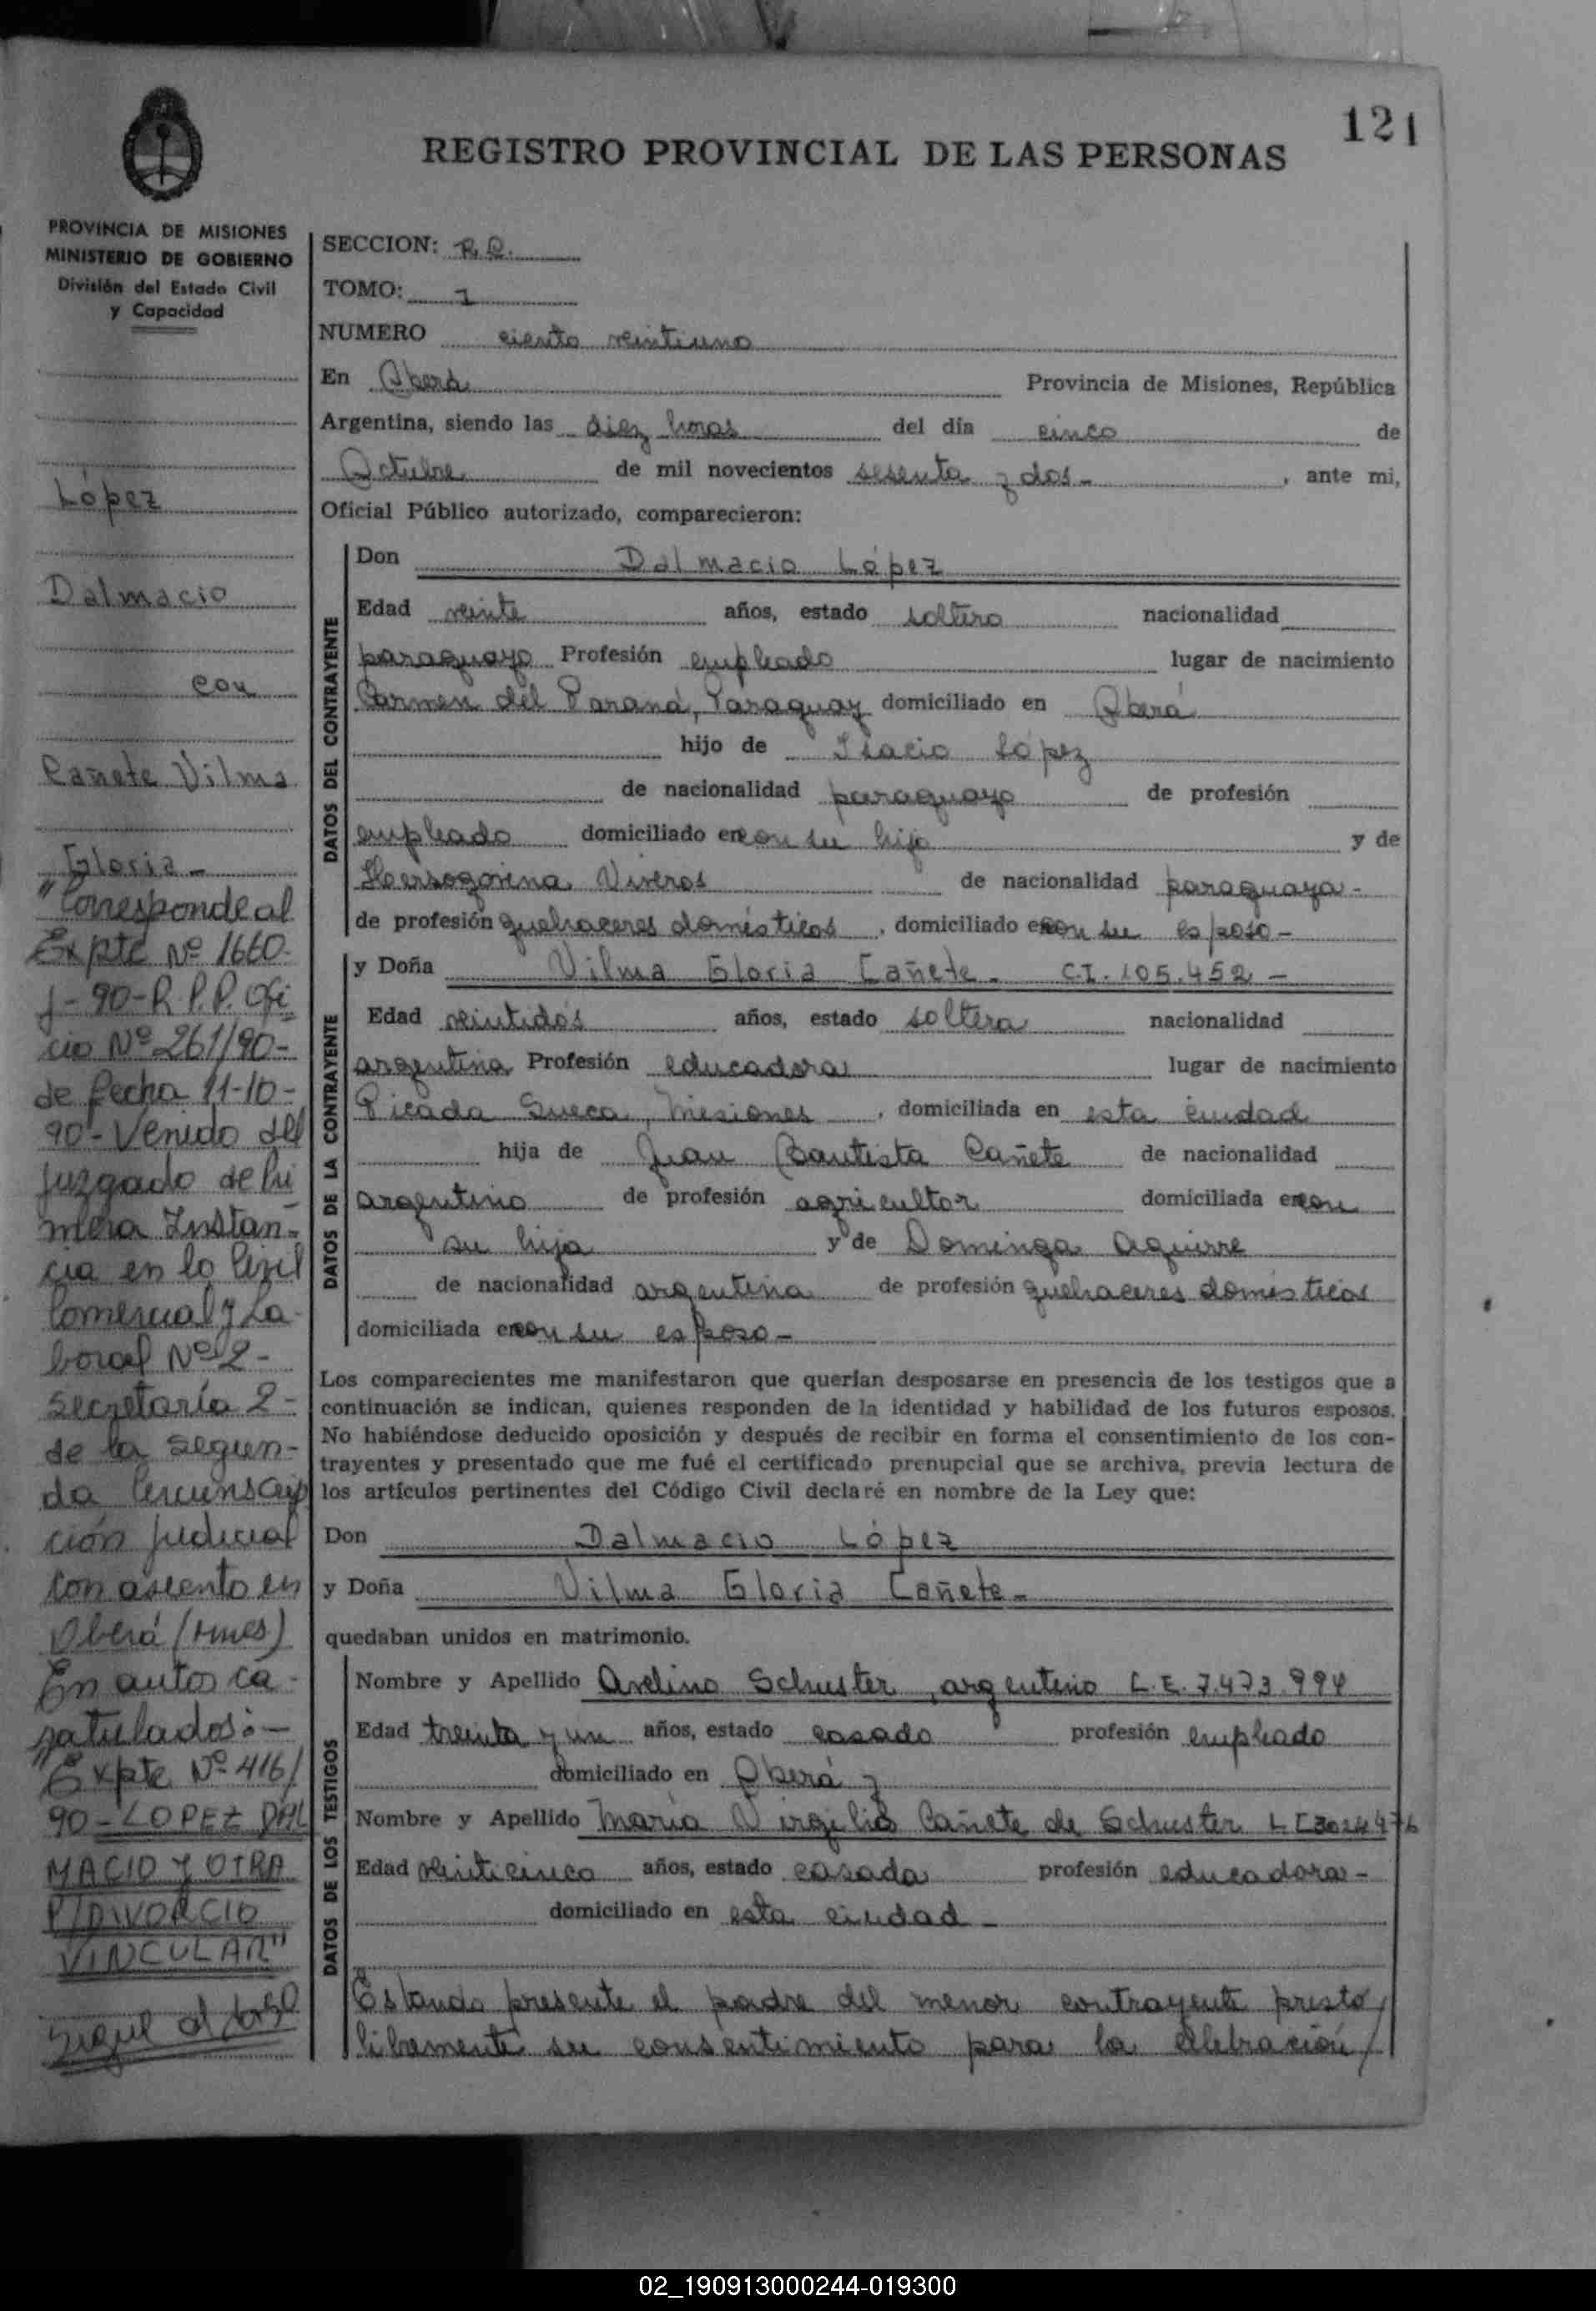 121
REGISTRO PROVINCIAL DE LAS PERSONAS
PROVINCIA DE MISIONES
MINISTERIO DE GOBIERNO
División del Estado Civil
y Capacidad
López
Dalmacio
con
Cañete Vilma
Gloria -
"Corresponde al
Expte Nº 1660-
90-R.P.P. Ofi
cio Nº 261/90-
de fecha 11-10-
90- Venido del
Juzgado de Pri
mera Instan-
cia en lo Civil
Comercial y La-
boral Nº 2-
Secretaría 2-
de la Segun-
da Circunscrip
ción Judicial
con asiento en
Oberá (Mnes)
En autos ca-
ratulados:-
"Expte Nº 416/
90-LOPEZ DAL
MACIO Y OTRA
P/DIVORCIO
VINCULAR"
Sigue al dorso
SECCION: R.R.
TOMO: 1
NUMERO ciento veintiuno
En Oberá Provincia de Misiones, República
Argentina, siendo las diez horas del día cinco de
Octubre de mil novecientos sesenta y dos- , ante mi,
Oficial Público autorizado, comparecieron:
DATOS DEL CONTRAYENTE
Don Dalmacio López
Edad veinte años, estado soltero nacionalidad
paraguayo Profesión empleado lugar de nacimiento
Carmen del Paraná, Paraguay domiciliado en Oberá
hijo de Isacio López
de nacionalidad paraguayo de profesión
empleado domiciliado en con su hijo y de
Viveros de nacionalidad paraguaya-
de profesión quehaceres domésticos , domiciliado en con su esposo-
DATOS DE LA CONTRAYENTE
y Doña Vilma Gloria Cañete- C.I. 105.452-
Edad veintidós años, estado soltera nacionalidad
argentina Profesión educadora lugar de nacimiento
Picada Sueca, Misiones , domiciliada en esta ciudad
hija de Juan Bautista Cañete de nacionalidad
argentino de profesión agricultor domiciliada en con
su hija y de Dominga Aguirre
de nacionalidad argentina de profesión quehaceres domésticos
domiciliada en con su esposo-
Los comparecientes me manifestaron que querían desposarse en presencia de los testigos que a
continuación se indican, quienes responden de la identidad y habilidad de los futuros esposos.
No habiéndose deducido oposición y después de recibir en forma el consentimiento de los con-
trayentes y presentado que me fué el certificado prenupcial que se archiva, previa lectura de
los artículos pertinentes del Código Civil declaré en nombre de la Ley que:
Don Dalmacio López
y Doña Vilma Gloria Cañete-
quedaban unidos en matrimonio.
DATOS DE LOS TESTIGOS
Nombre y Apellido Avelino Schuster, argentino L.E. 7.473.994
Edad treinta y un años, estado casado profesión empleado
domiciliado en Oberá y
Nombre y Apellido María Virgilia Cañete de Schuster
Edad veinticinco años, estado casada profesión educadora-
domiciliado en esta ciudad-
Estando presente el padre del menor contrayente prestó
libremente su consentimiento para la celebración/
02_190913000244-019300